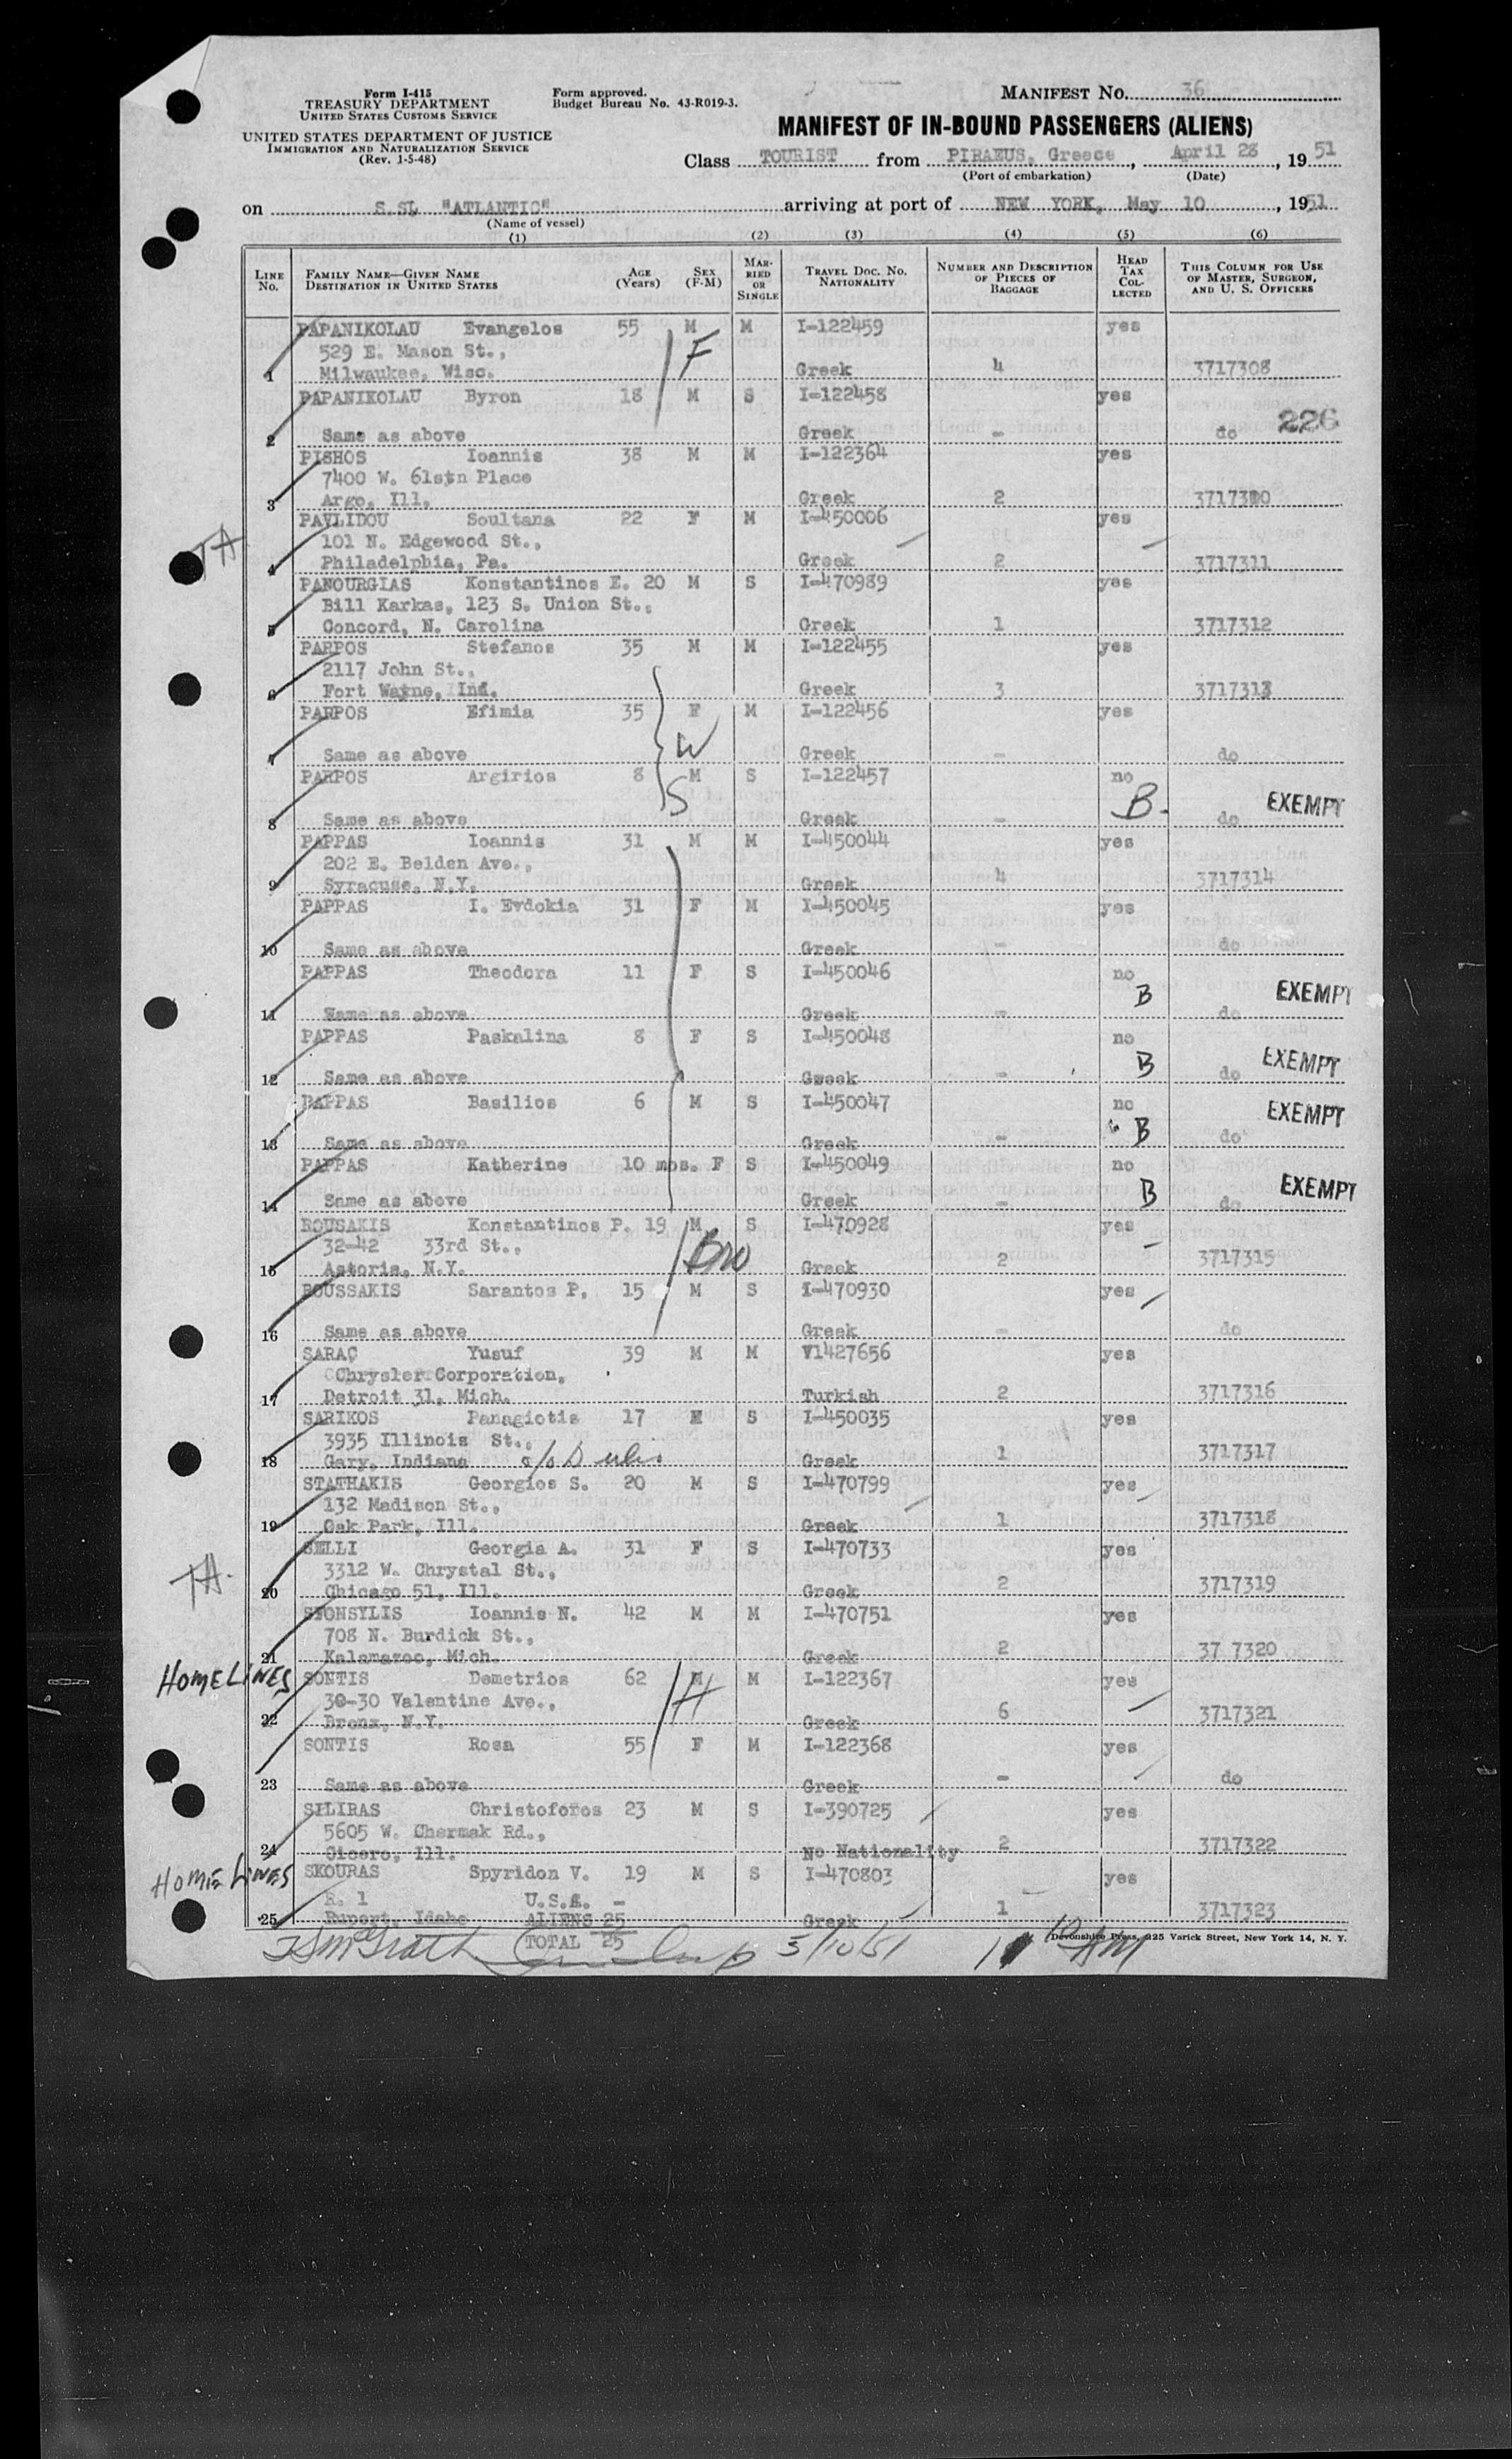 Form I-415
TREASURY DEPARTMENT
UNITED STATES CUSTOMS SERVICE
UNITED STATES DEPARTMENT OF JUSTICE
IMMIGRATION AND NATURALIZATION SERVICE
(Rev. 1-5-48)
Form approved.
Budget Bureau No. 43-R019-3.
MANIFEST No. 36
MANIFEST OF IN-BOUND PASSENGERS (ALIENS)
Class TOURIST from PIRAEUS, Greece, April 28, 1951
(Port of embarkation) (Date)
on S.S. "ATLANTIC" arriving at port of NEW YORK, May 10, 1951
(Name of vessel)
(1) (2) (3) (4) (5) (6)
LINE No. FAMILY NAME—GIVEN NAME DESTINATION IN UNITED STATES AGE (Years) SEX (F-M) MARRIED OR SINGLE TRAVEL DOC. NO. NATIONALITY NUMBER AND DESCRIPTION OF PIECES OF BAGGAGE HEAD TAX COLLECTED THIS COLUMN FOR USE OF MASTER, SURGEON, AND U. S. OFFICERS
PAPANIKOLAU Evangelos 55 M M I-122459 yes
529 E. Mason St., F
1 Milwaukee, Wisc. Greek 4 3717308
PAPANIKOLAU Byron 18 M S I-122458 yes
226
2 Same as above Greek - do
PISHOS Ioannis 38 M M I-122364 yes
7400 W. 61stn Place
3 Argo, Ill. Greek 2 3717310
PAVLIDOU Soultana 22 F M I-450006 yes
TA 101 N. Edgewood St.,
4 Philadelphia, Pa. Greek 2 3717311
PANOURGIAS Konstantinos E. 20 M S I-470989 yes
Bill Karkas, 123 S. Union St.,
5 Concord, N. Carolina Greek 1 3717312
PARPOS Stefanos 35 M M I-122455 yes
2117 John St.,
6 Fort Wayne, Ind. Greek 3 3717313
PARPOS Efimia 35 F M I-122456 yes
W
7 Same as above Greek - do
PARPOS Argirios 8 M S I-122457 no
S B. EXEMPT
8 Same as above Greek - do
PAPPAS Ioannis 31 M M I-450044 yes
202 E. Belden Ave.,
9 Syracuse, N.Y. Greek 4 3717314
PAPPAS I. Evdokia 31 F M I-450045 yes
10 Same as above Greek - do
PAPPAS Theodora 11 F S I-450046 no
B EXEMPT
11 Same as above Greek - do
PAPPAS Paskalina 8 F S I-450048 no
B EXEMPT
12 Same as above Greek - do
PAPPAS Basilios 6 M S I-450047 no
B EXEMPT
13 Same as above Greek - do
PAPPAS Katherine 10 mos. F S I-450049 no
B EXEMPT
14 Same as above Greek - do
ROUSAKIS Konstantinos P. 19 M S I-470928 yes
32-42 33rd St., Bro
15 Astoria, N.Y. Greek 2 3717315
ROUSSAKIS Sarantos P. 15 M S I-470930 yes
16 Same as above Greek - do
SARAÇ Yusuf 39 M M V1427656 yes
Chrysler Corporation,
17 Detroit 31, Mich. Turkish 2 3717316
SARIKOS Panagiotis 17 M S I-450035 yes
3935 Illinois St.,
18 Gary, Indiana c/o Greek 1 3717317
STATHAKIS Georgios S. 20 M S I-470799 yes
132 Madison St.,
19 Oak Park, Ill. Greek 1 3717318
SELLI Georgia A. 31 F S I-470733 yes
TA. 3312 W. Chrystal St.,
20 Chicago 51, Ill. Greek 2 3717319
STONSYLIS Ioannis N. 42 M M I-470751 yes
708 N. Burdick St.,
21 Kalamazoo, Mich. Greek 2 37 7320
HOME LINES SONTIS Demetrios 62 M M I-122367 yes
30-30 Valentine Ave., H
22 Bronx, N.Y. Greek 6 3717321
SONTIS Rosa 55 F M I-122368 yes
23 Same as above Greek - do
SILIRAS Christoforos 23 M S I-390725 yes
5605 W. Chermak Rd.,
24 Cicero, Ill. No Nationality 2 3717322
HOME LINES SKOURAS Spyridon V. 19 M S I-470803 yes
R. 1 U.S.A. -
25 Rupert, Idaho ALIENS 25 Greek 1 3717323
TOTAL 25
5/10/51 10 AM
Devonshire Press, 225 Varick Street, New York 14, N. Y.